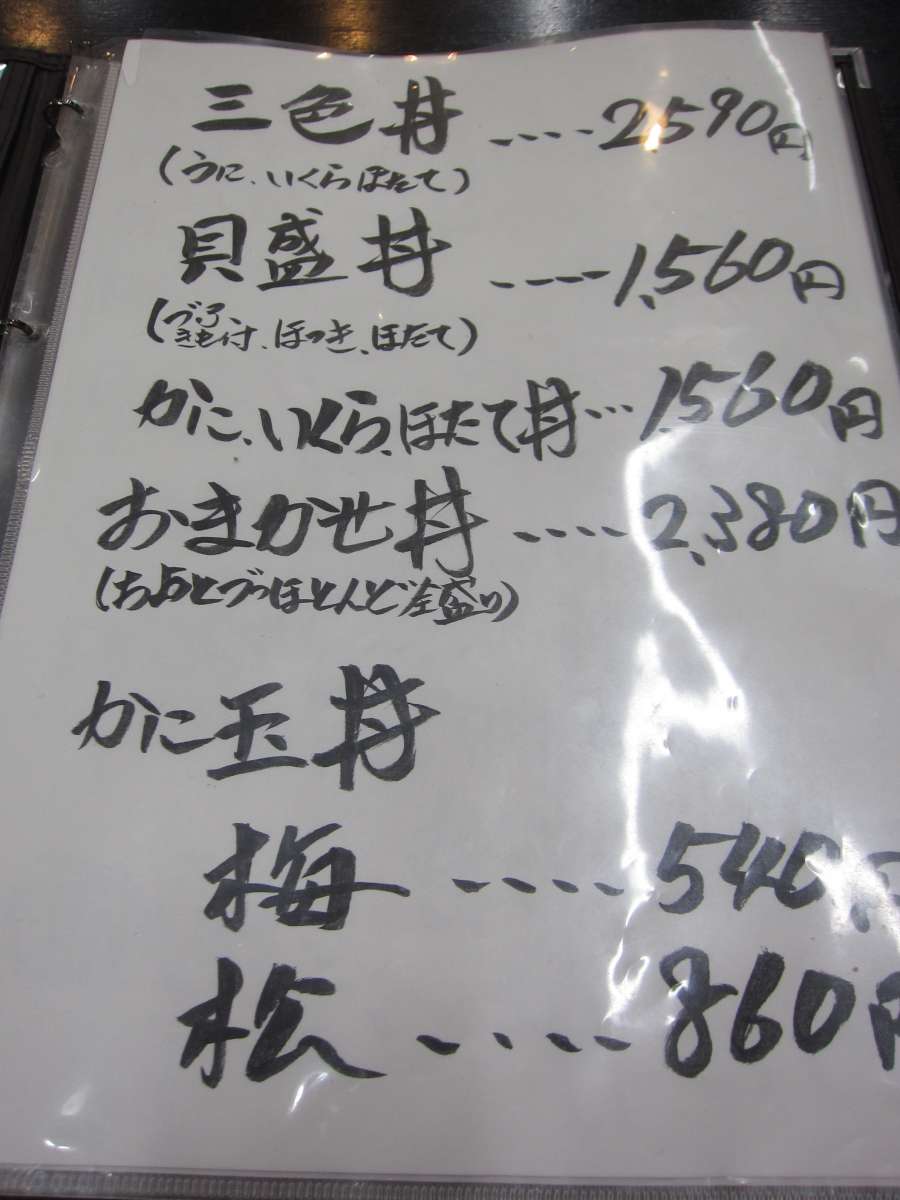 三色丼 ---- 2,590円
(うに、いくら ほたて)
貝盛丼 ---- 1,560円
(づぶ、きも付、ほっき、ほたて)
かに、いくら、ほたて丼… 1,560円
おまかせ丼 ---- 2,380円
(ほとんど全盛り)
かに玉丼
梅 ---- 540円
松 ---- 860円